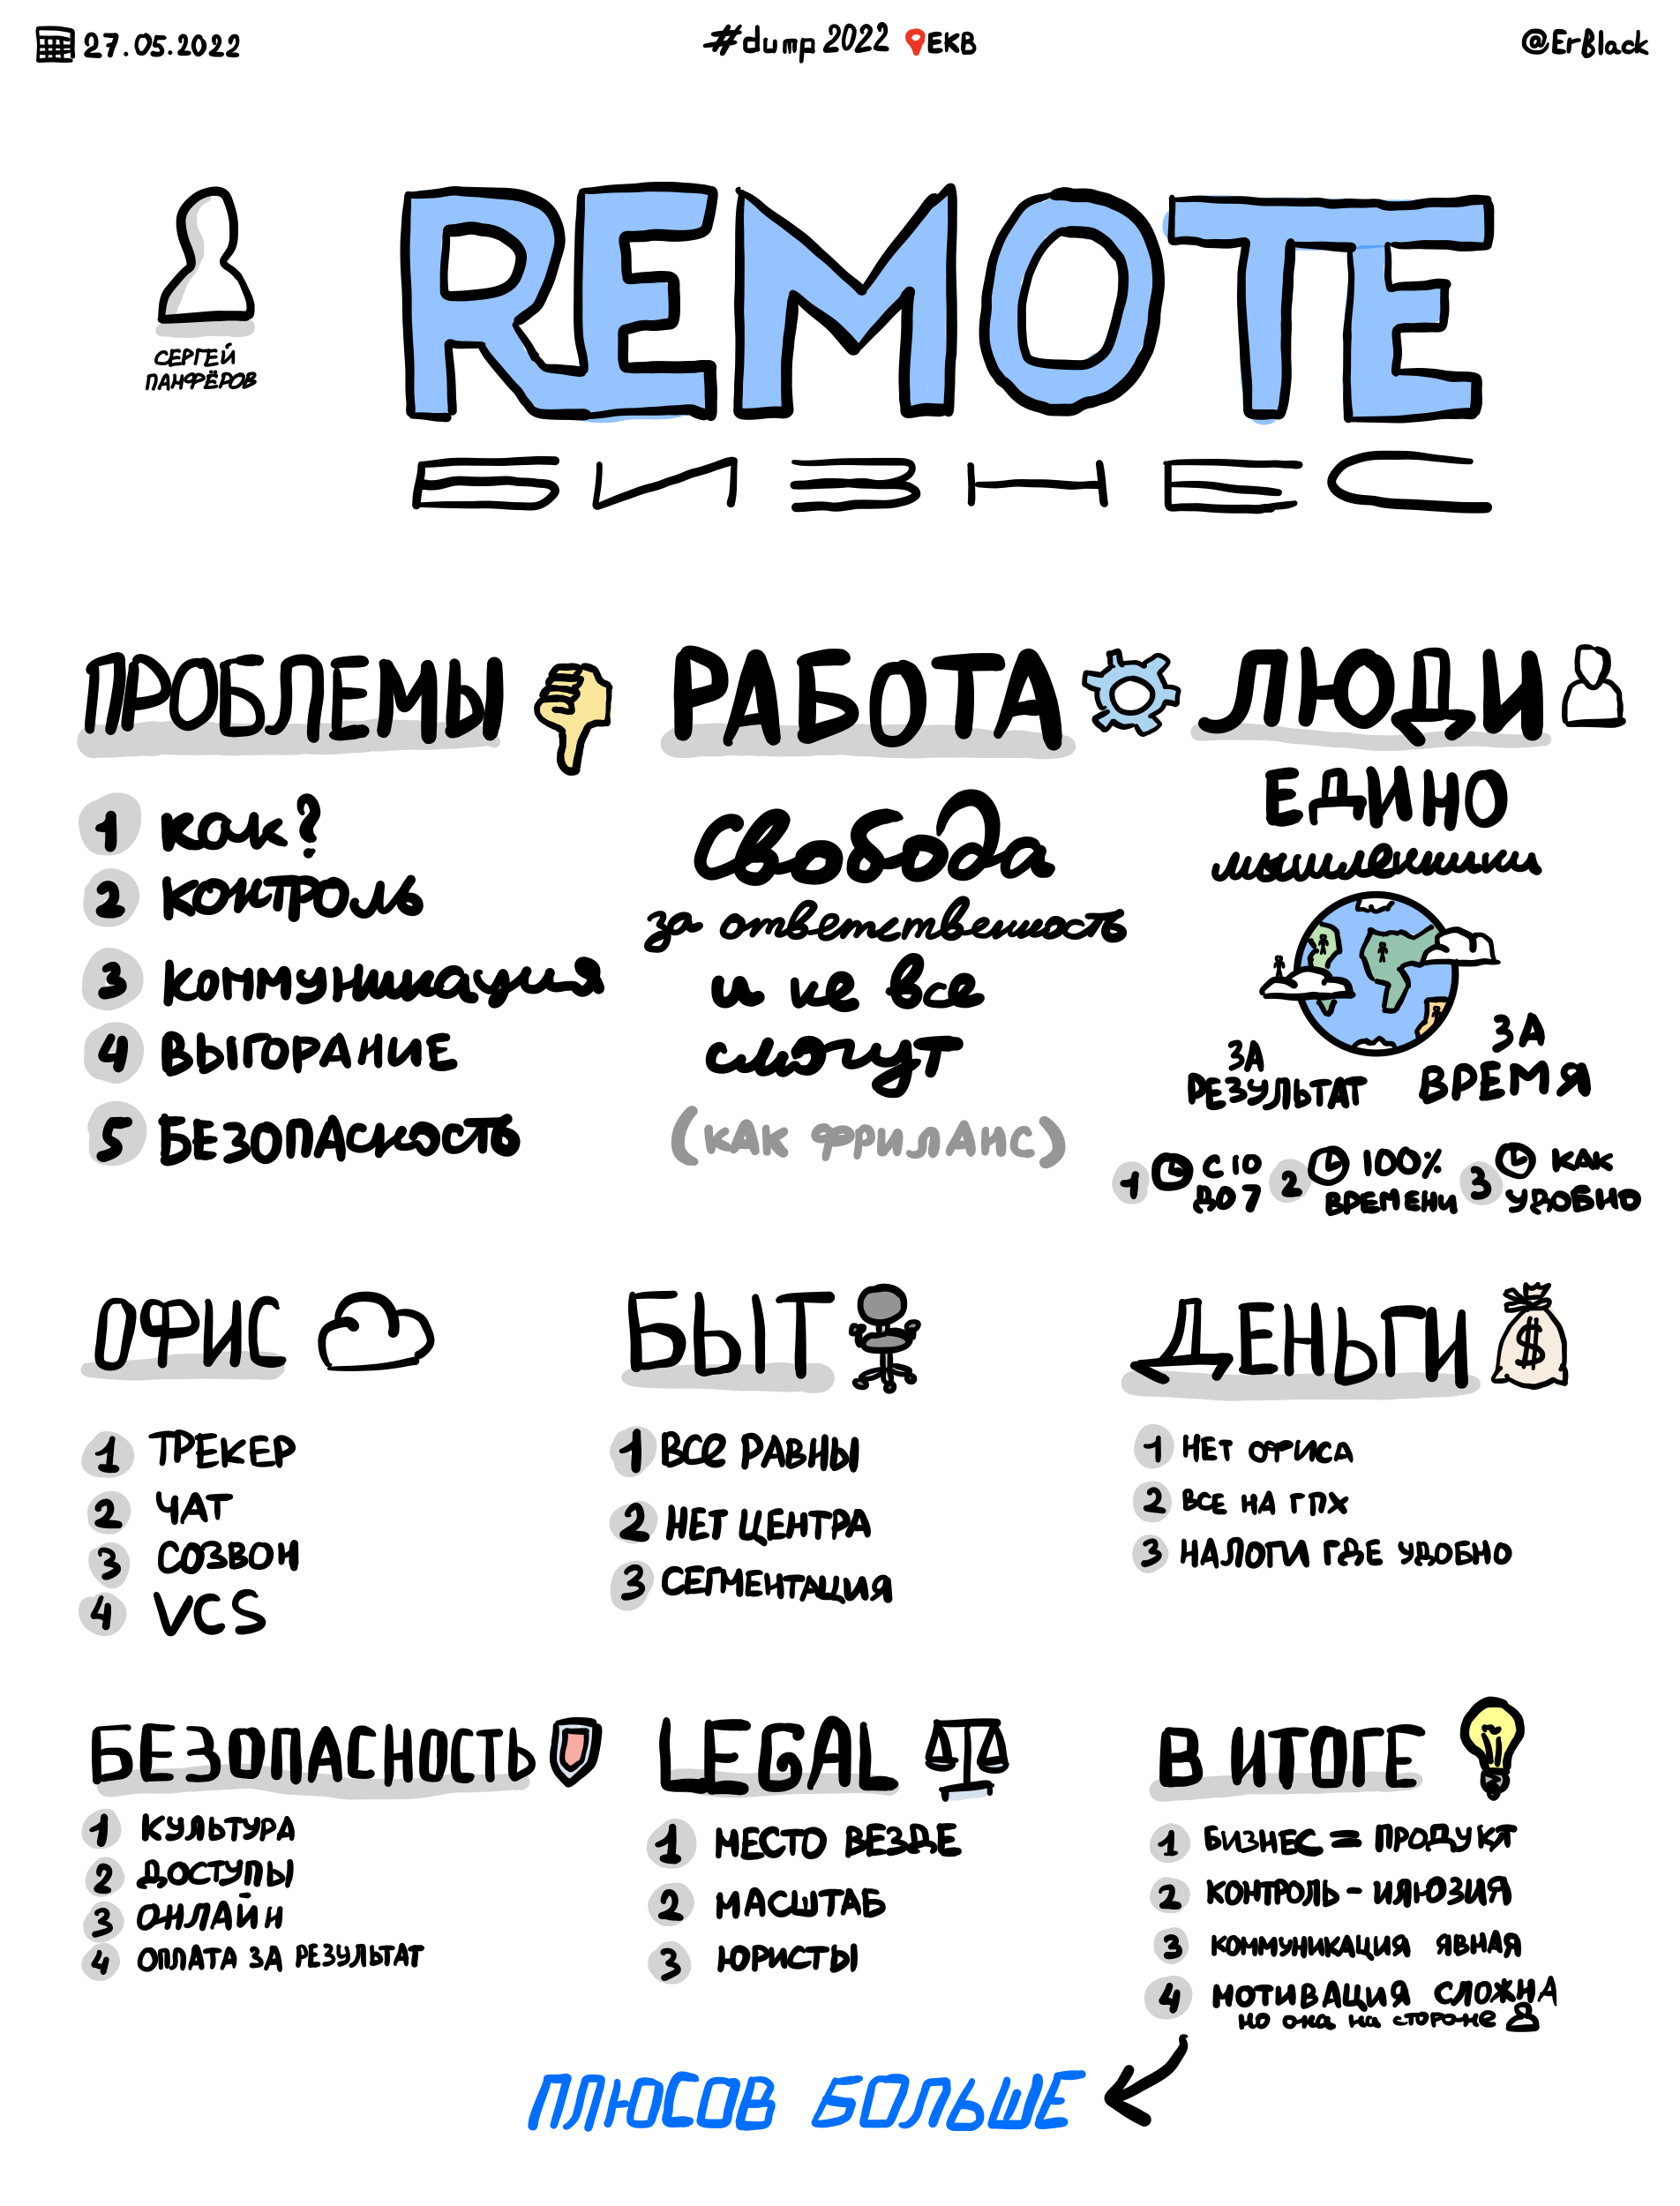 27.05.2022
#dump2022 ЕКВ
@ErBlack
СЕРГЕЙ
ПАНФЁРОВ
REMOTE
БИЗНЕС
ПРОБЛЕМЫ
1 как?
2 контроль
3 коммуникация
4 ВЫГОРАНИЕ
5 БЕЗОПАСНОСТЬ
РАБОТА
свобода
за ответственность
и не все
смогут
(КАК ФРИЛАНС)
ЛЮДИ
ЕДИНО
мышленники
ЗА
РЕЗУЛЬТАТ
ЗА
ВРЕМЯ
1 С 10
ДО 7
2 100%
ВРЕМЕНИ
3 КАК
УДОБНО
ОФИС
1 ТРЕКЕР
2 ЧАТ
3 СОЗВОН
4 VCS
БЫТ
1 ВСЕ РАВНЫ
2 НЕТ ЦЕНТРА
3 СЕГМЕНТАЦИЯ
ДЕНЬГИ
$
1 НЕТ ОФИСА
2 ВСЕ НА ГПХ
3 НАЛОГИ ГДЕ УДОБНО
БЕЗОПАСНОСТЬ
1 КУЛЬТУРА
2 ДОСТУПЫ
3 ОНЛАЙН
4 ОПЛАТА ЗА РЕЗУЛЬТАТ
LEGAL
1 МЕСТО ВЕЗДЕ
2 МАСШТАБ
3 ЮРИСТЫ
В ИТОГЕ
1 БИЗНЕС = ПРОДУКТ
2 КОНТРОЛЬ - ИЛЮЗИЯ
3 КОММУНИКАЦИЯ ЯВНАЯ
4 МОТИВАЦИЯ СЛОЖНА
но она на стороне
ПЛЮСОВ БОЛЬШЕ